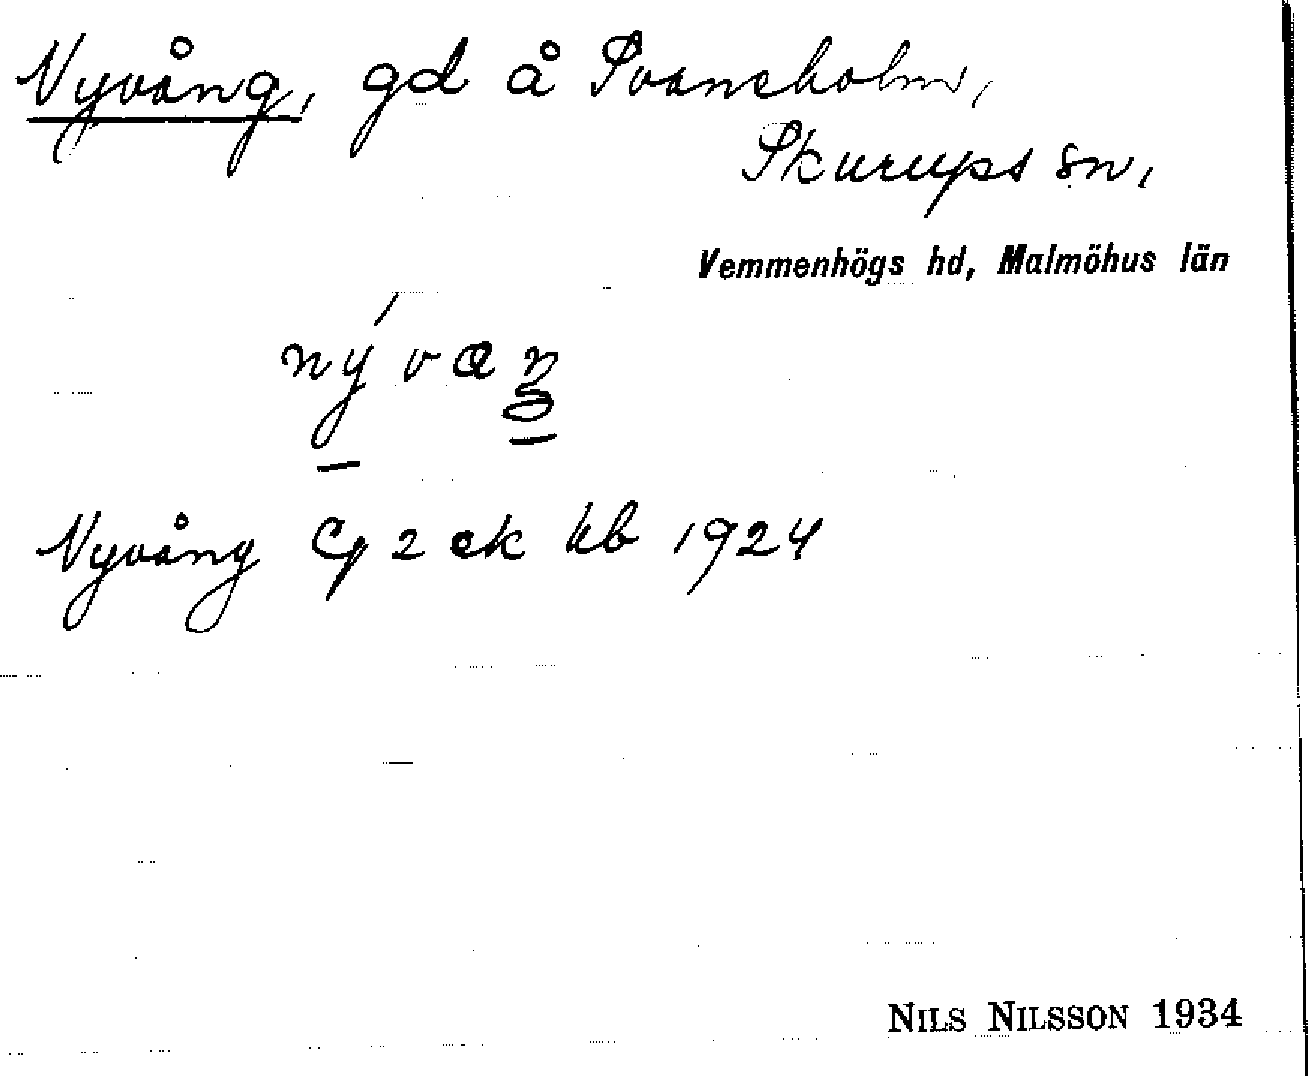 Nyvång, gd å Svaneholm,
Skurups sn,
Vemmenhögs hd, Malmöhus län
nývaŋ
Nyvång Cg 2 ek kb 1924
NILS NILSSON 1934